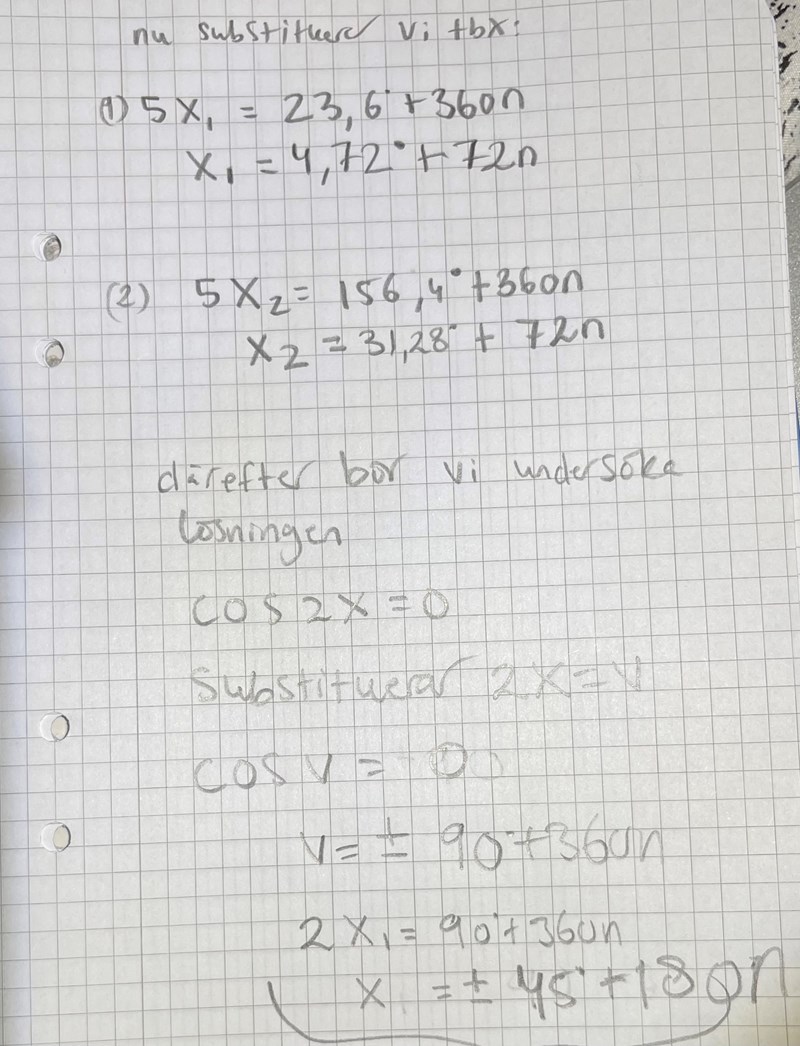 nu substituerar vi tbx:
(1) 5x₁ = 23,6° + 360n
x₁ = 4,72° + 72n
(2) 5x₂ = 156,4° + 360n
x₂ = 31,28° + 72n
därefter bör vi undersöka
lösningen
cos 2x = 0
Substituerar 2x = v
cos v = 0
v = ± 90° + 360n
2x₁ = 90° + 360n
x = ± 45° + 180n